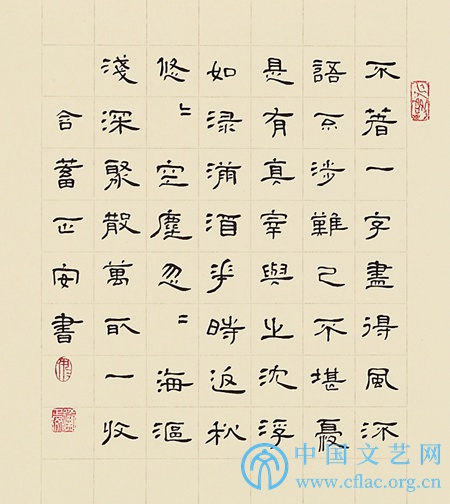 不著一字盡得風流
語不涉難已不堪憂
是有真宰與之沈浮
如淥滿酒花時返秋
悠〻空塵忽〻海漚
淺深聚散萬取一收
含蓄正安書
中国文艺网
www.cflac.org.cn